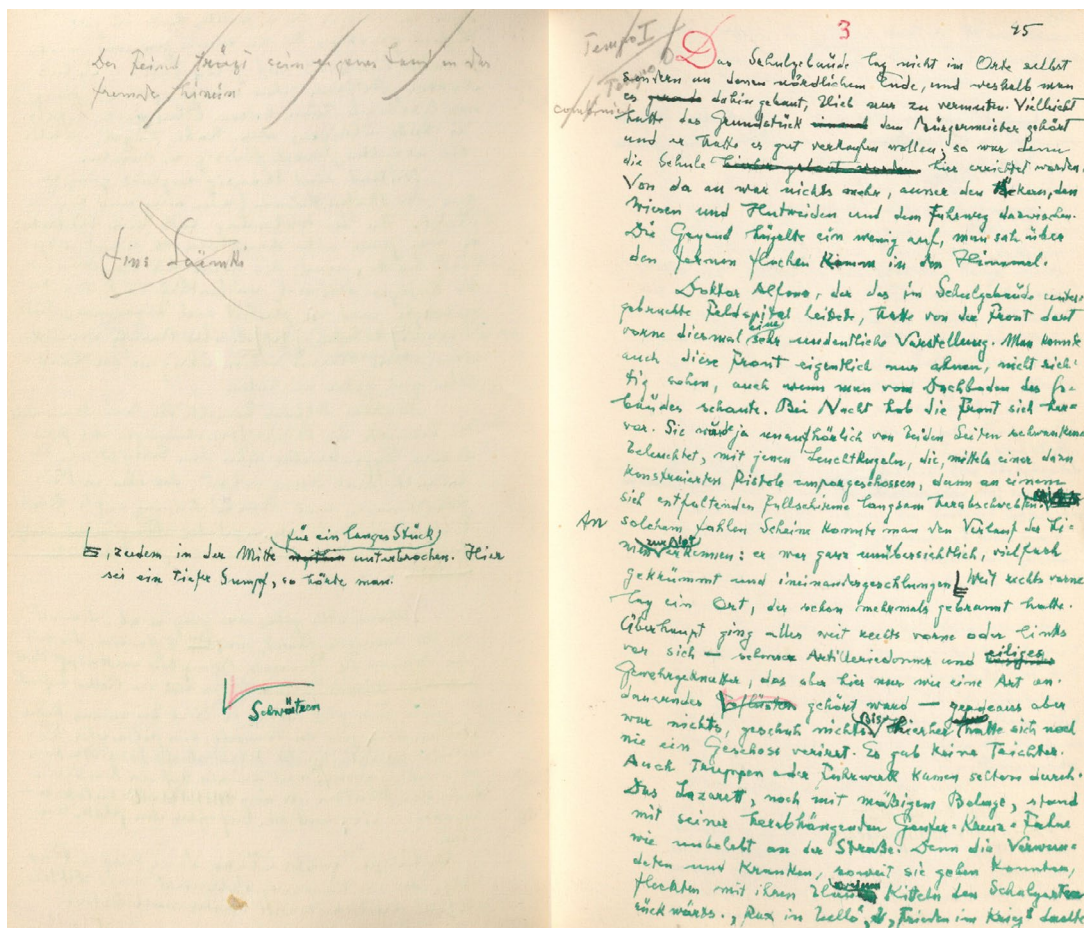 Der Feind trägt sein eigenes Land in das
fremde hinein
für ein langes Stück
, zudem in der Mitte unterbrochen. Hier
sei ein tiefer Sumpf, so hörte man.
Schwätzen
3
15
Tempo I
Tempo
Das Schulgebäude lag nicht im Orte selbst
sondern an deren nördlichem Ende, und weshalb man
es gerade dahin gebaut, blieb nur zu vermuten. Vielleicht
hatte das Grundstück einmal dem Bürgermeister gehört
und er hatte es gut verkaufen wollen; so war denn
die Schule hierher gebaut worden hier errichtet worden.
Von da an war nichts mehr, ausser den Äckern, den
Wiesen und Hutweiden und dem Fuhrweg dazwischen.
Die Gegend hügelte ein wenig auf, man sah über
den fernen flachen Kamm in den Himmel.
Doktor Alfons, der das im Schulgebäude unter-
gebrachte Feldspital leitete, hatte von der Front dort
vorne diesmal eine sehr undeutliche Vorstellung. Man konnte
auch diese Front eigentlich nur ahnen, nicht rich-
tig sehen, auch wenn man vom Dachboden des Ge-
bäudes schaute. Bei Nacht hob die Front sich her-
vor. Sie wurde ja unaufhörlich von beiden Seiten schwankend
beleuchtet, mit jenen Leuchtkugeln, die, mittels einer dazu
konstruierten Pistole emporgeschossen, dann an einem
sich entfaltenden Fallschirme langsam herabschwebten.
An solchem fahlen Scheine konnte man den Verlauf der Li-
nien zur Not erkennen: er war ganz unübersichtlich, vielfach
gekrümmt und ineinandergeschlungen. Weit rechts vorne
lag ein Ort, der schon mehrmals gebrannt hatte.
Überhaupt ging alles weit rechts vorne oder links
vor sich — schwerer Artilleriedonner und eiliges
Gewehrgeknatter, das aber hier nur wie eine Art an-
dauerndes gehört ward — geradeaus aber
war nichts, geschah nichts. Bis hierher hatte sich noch
nie ein Geschoss verirrt. Es gab keine Trichter.
Auch Truppen oder Fuhrwerk kamen seltens durch.
Das Lazarett, noch mit mäßigem Belage, stand
mit seiner herabhängenden Genfer-Kreuz-Fahne
wie unbelebt an der Straße. Denn die Verwun-
deten und Kranken, soweit sie gehen konnten,
fleckten mit ihren Kitteln den Schulgarten
rückwärts. „Pax in bello“, „Frieden im Krieg“ dachte